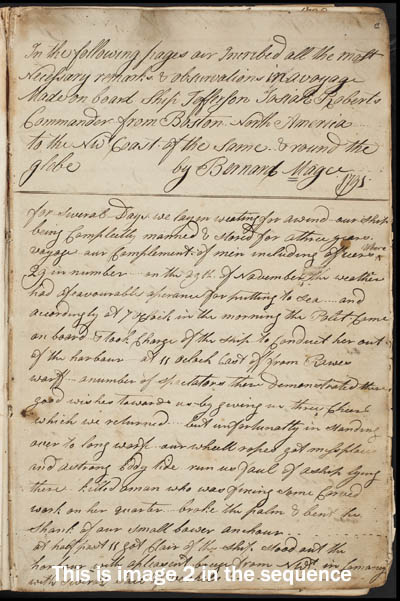 In the following pages are Inscribed all the most
Necessary remarks & observations in a voyage
Made on board Ship Jefferson Josiah Roberts
Commander from Boston North America
to the NW Coast of the Same & round the
globe by Bernard Magee
1791
for Several Days we layen weating for a wend our Ship
being Compleetly manned & stored for a three years
voyage our Complement of men including officers where
in number on the 29th of November the weather
had a favourable aperance for putting to Sea and
acordingly at 7 oClock in the morning the Pilot Came
on board & took Charge of the ship to Conduct her out
of the harbour at 11 oClock Cast off from
warf a number of Spectators there Demonstrated there
good wishes towards us by giving us three Cheers
which we returned but unfortunatly in standing
over to long warf our wheell ropes got
and a strong Eddy tide run us faul of a ship lying
there killed a man who was fixing some Carved
work on her quarter broke the palm & bent the
Shank of our Small bower anchour
at half past 11 got Clair of the Ship Stood out the
harbour with a pleasent from
with
This is image 2 in the sequence